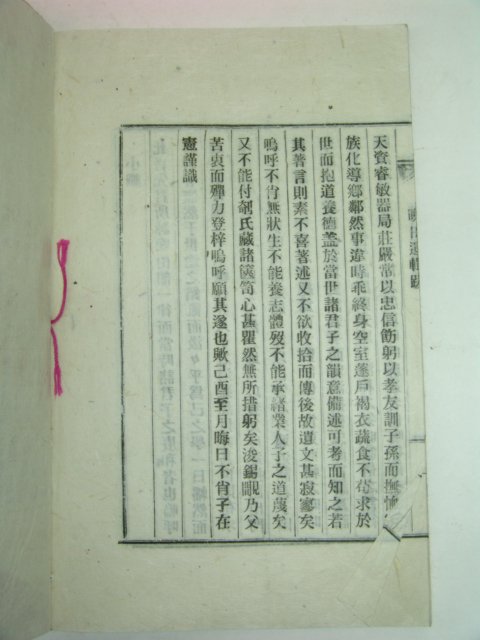 天資睿敏器局莊嚴常以忠信飭躬以孝友訓子孫而撫恤
族化導鄉鄰然事違時乖終身空室蓬戶褐衣蔬食不苟求於
世而抱道養德盖於當世諸君子之韻意備述可考而知之若
其著言則素不喜著述又不欲收拾而傳後故遺文甚寂寥矣
嗚呼不肖無狀生不能養志體歿不能承緖業人子之道蔑矣
又不能付剞氏藏諸篋笥心甚瞿然無所措躬矣浚錫覵乃父
苦衷而殫力登梓嗚呼願其遂也歟己酉至月晦日不肖子在
憲謹識